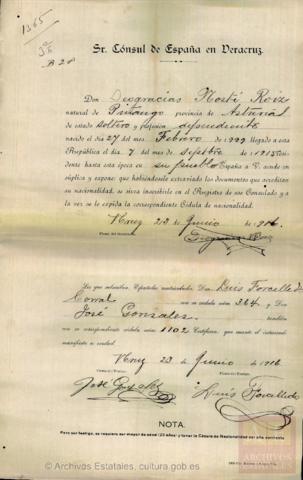 1365
3ª
B 20
Sr. Cónsul de España en Veracruz.
Don Deogracias Mortí Roiz
natural de provincia de Asturias
de estado soltero y profesión dependiente
nacido el día 27 del mes Febrero de 1999 llegado a esta
República el día 7 del mes de 1913 resi-
dente hasta esta época en su pueblo España a V. acude en
súplica y expone: que habiéndosele extraviado los documentos que acreditan
su nacionalidad, se sirva inscribirle en el Registro de ese Consulado y a
la vez se le expida la correspondiente Cédula de nacionalidad.
Vcruz 23 de Junio de 1916
Firma del
Los que suscriben Españoles matriculados, Don Luis Forcelledo
Corral con su cédula núm. 364 y Don
José Gonzales también
con su correspondiente cédula núm. 1102 Certifican, que cuanto el interesado
manifiesta es verdad.
Vcruz 23 de Junio de 1916
José Luis Forcelledo
NOTA.
Para ser testigo, se requiere ser mayor de edad (23 años) y tener la Cédula de Nacionalidad del año corriente
ARCHIVOS
© Archivos Estatales, cultura.gob.es